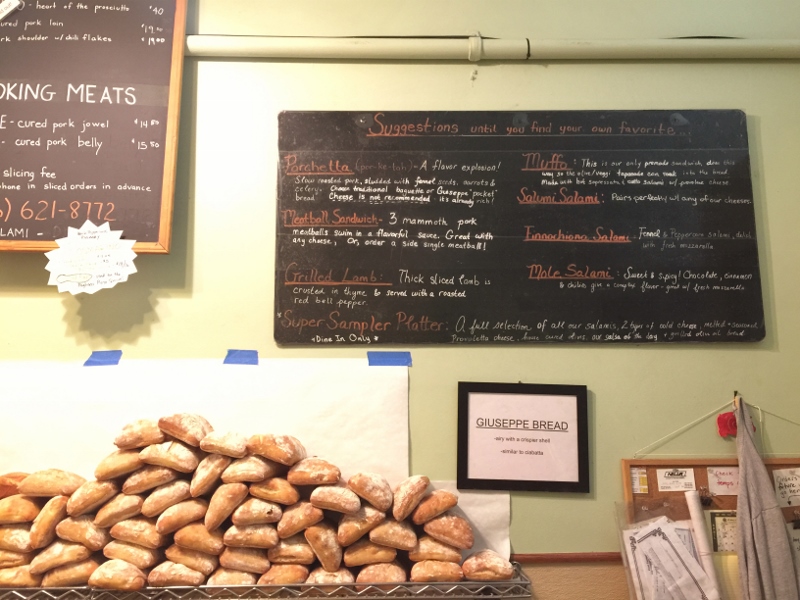 - heart of the prosciutto $40
cured pork loin
pork shoulder w/ chili flakes
OKING MEATS
E - cured pork jowel $14.80
- cured pork belly $15.50
slicing fee
phone in sliced orders in advance
) 621-8772
ALAMI -
Suggestions until you find your own favorite...
Porchetta (por-ke-tah) = A flavor explosion!
Slow roasted pork, studded with fennel seeds, carrots &
celery. Choose traditional baguette or Giuseppe "pocket"
bread. Cheese is not recommended - it's already rich!
Meatball Sandwich - 3 mammoth pork
meatballs swim in a flavorful sauce. Great with
any cheese; Or, order a side single meatball!
Grilled Lamb: Thick sliced lamb is
crusted in thyme & served with a roasted
red bell pepper.
Muffo: This is our only premade sandwich, done this
way so the olive/veggi tapenade can soak into the bread
Made with hot sopressata, cotto salami w/ provolone cheese
Salumi Salami: Pairs perfectly w/ any of our cheeses
Finnochiona Salami: Fennel & Peppercorn salami,
with fresh mozzarella
Mole Salami: Sweet & spicy! Chocolate, cinnamon
& chilis give a complex flavor - good w/ fresh mozzarella
*Super Sampler Platter: A full selection of all our salamis, 2 types of cold cheese, melted + seasoned
*Dine In Only* Provoletta cheese, house cured olives, our salsa of the day & grilled oiled bread
GIUSEPPE BREAD
-airy with a crispier shell
-similar to ciabatta